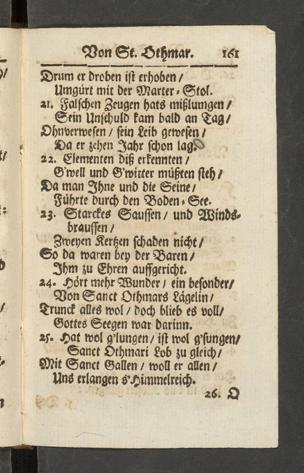 Von St. Othmar. 161
Drum er droben ist erhoben /
Umgürt mit der Marter-Stol.
21. Falschen Zeugen hats mißlungen /
Sein Unschuld kam bald an Tag /
Ohnverwesen / sein Leib gewesen /
Da er zehen Jahr schon lag.
22. Elementen diß erkennten /
G'well und G'witter müßten steh /
Da man Ihne und die Seine /
Führte durch den Boden-See.
23. Starckes Saussen / und Winds-
braussen /
Zweyen Kertzen schaden nicht /
So da waren bey der Baren /
Ihm zu Ehren auffgericht.
24. Hört mehr Wunder / ein besonder /
Von Sanct Othmars Lägelin /
Trunck alles wol / doch blieb es voll /
Gottes Seegen war darinn.
25. Hat wol g'lungen / ist wol g'sungen /
Sanct Othmari Lob zu gleich /
Mit Sanct Gallen / woll er allen /
Uns erlangen s'Himmelreich.
26. O